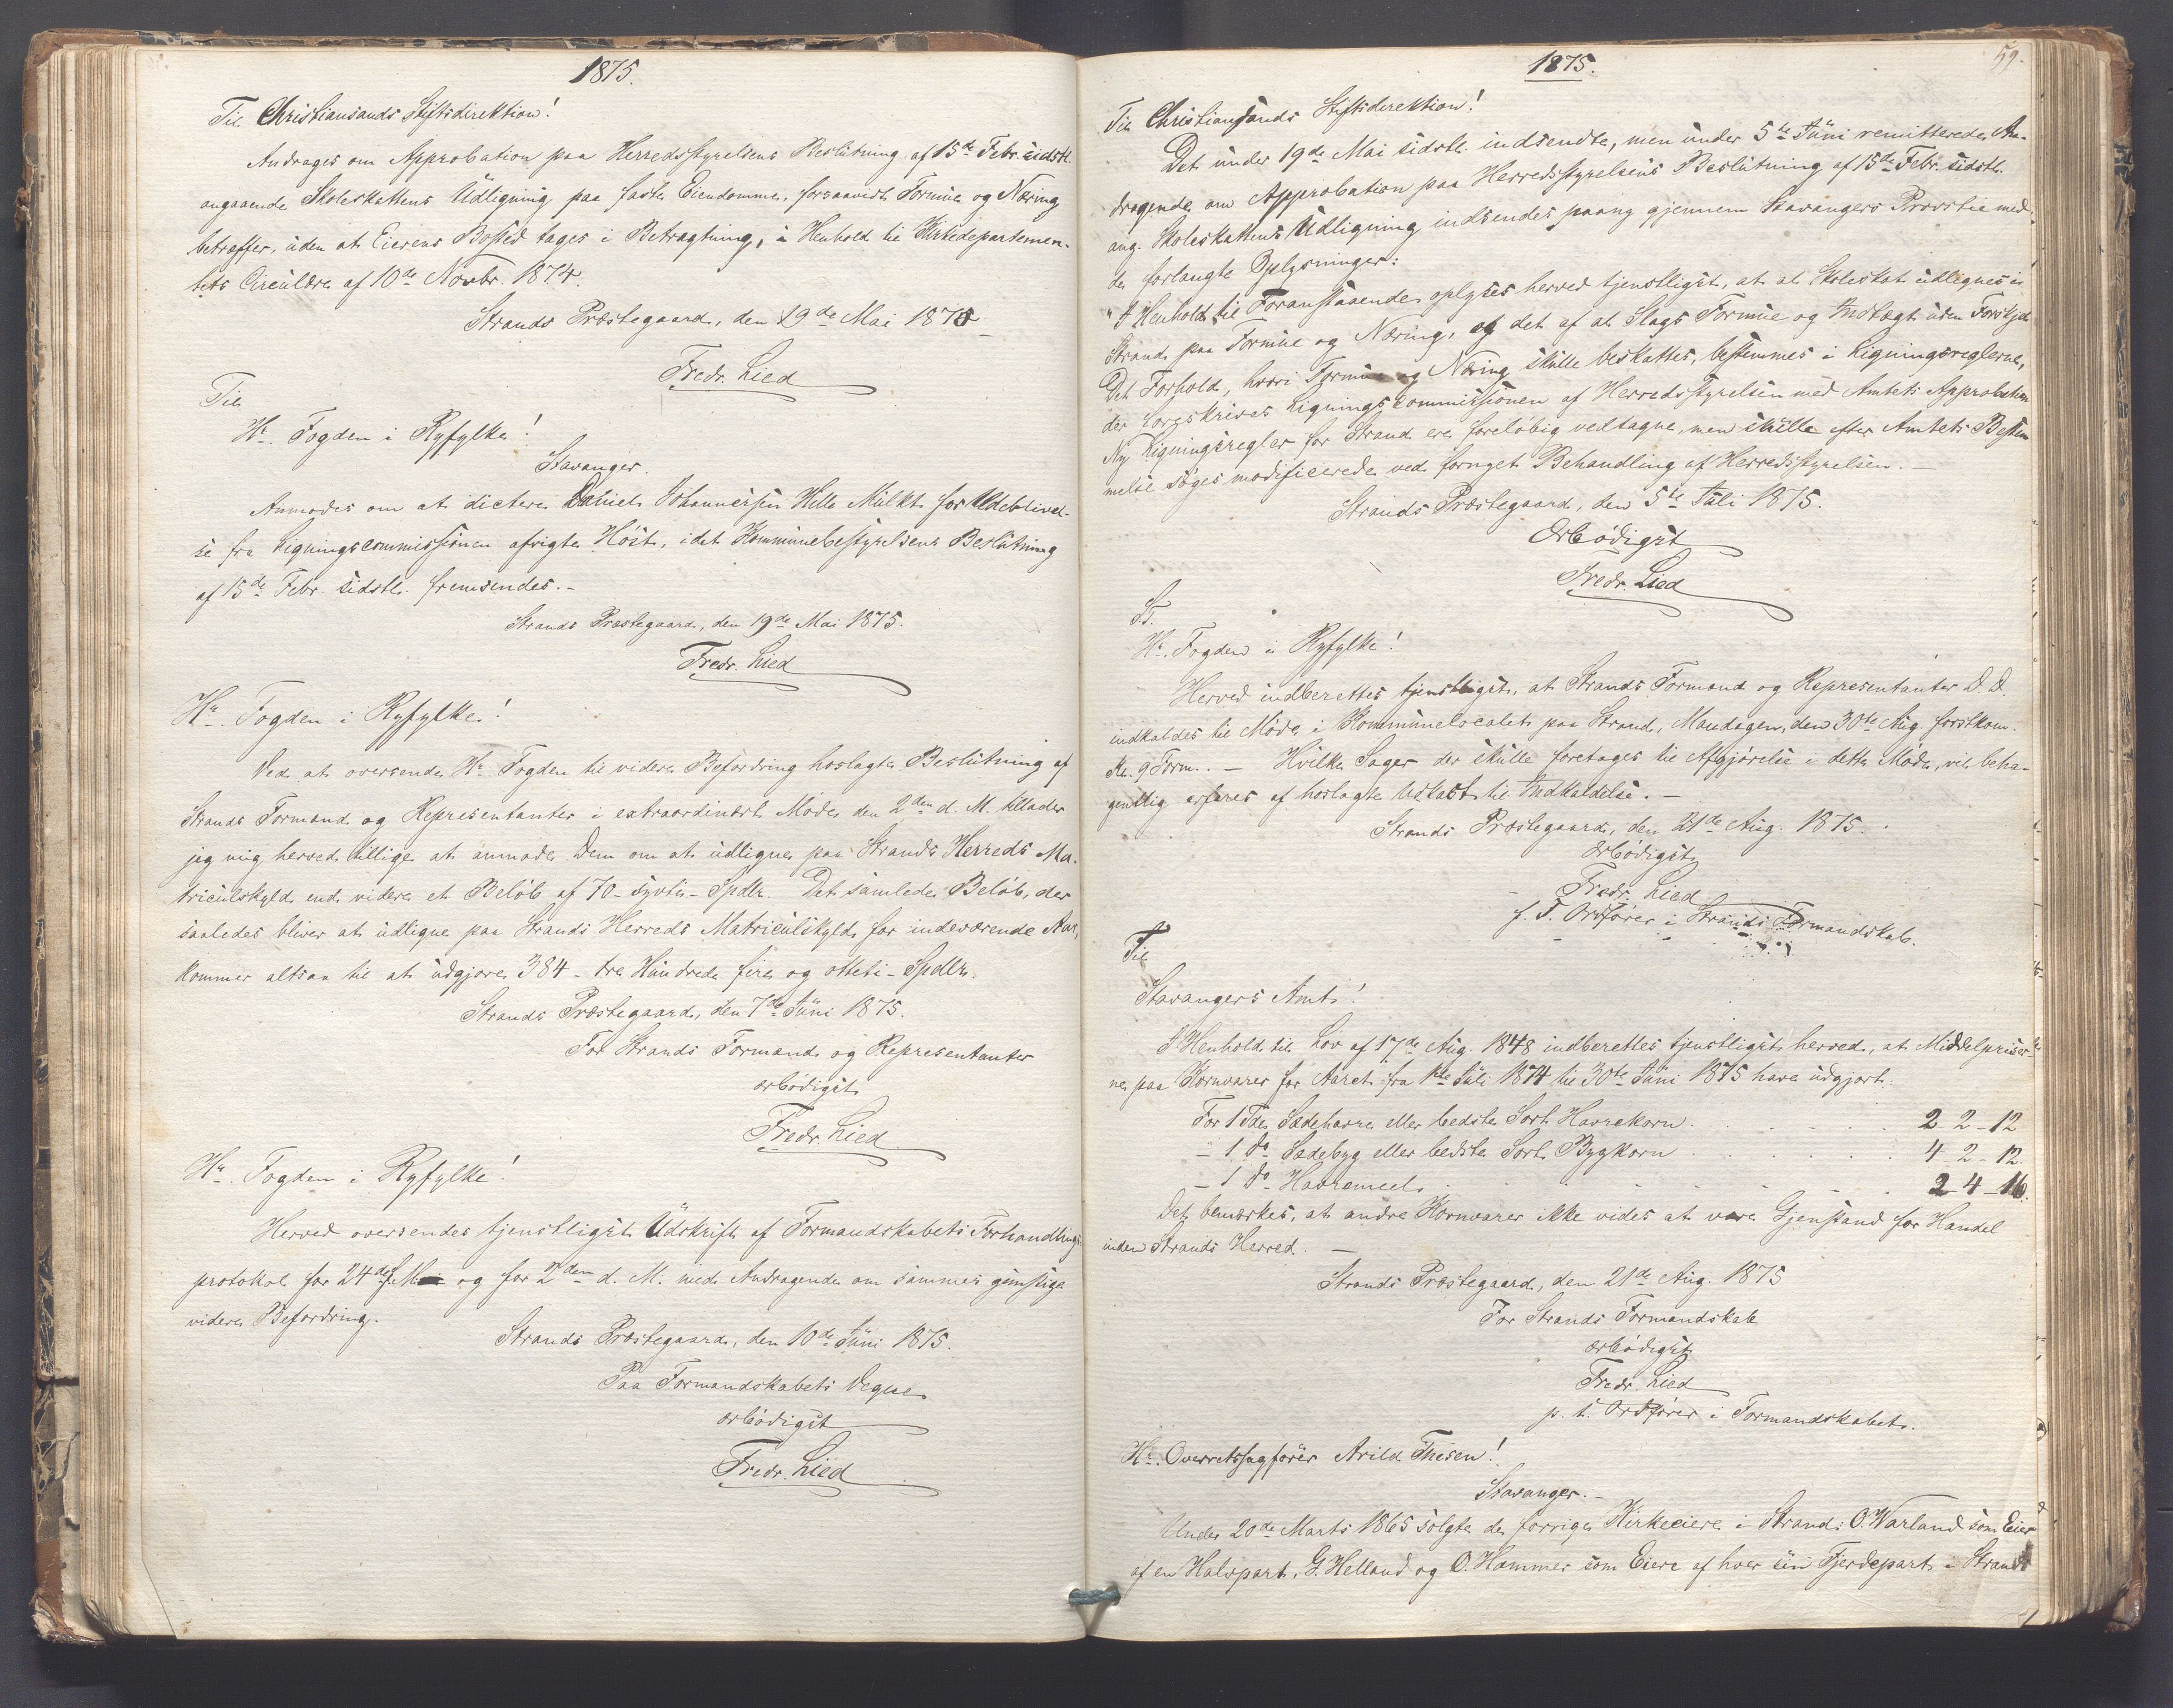 1875.
Til Christiansands Stiftsdirektion!
Andrages om Approbation paa Herredsstyrelsens Beslutning af 15de Febr. sidstl.
angaaende Skoleskattens Udligning paa faste Eiendomme, forsaavidt Formue og Næring
betræffer, uden at Eierens Bosted tages i Betragtning, i Henhold til Kirkedepartemen-
tets Circulære af 10de Novbr. 1874.
Strands Præstegaard, den 19de Mai 1875
Fredr. Lied
Til
Hr. Fogden i Ryfylke!
Stavanger.
Anmodes om at dictere Daniel Johannersen Helle Mulkt for Udeblivel-
se fra Ligningscommissionen afvigte Høst, idet Kommunebestyrelsens Beslutning
af 15de Febr. sidstl. fremsendes.-
Strands Præstegaard, den 19de Mai 1875.
Fredr. Lied
Hr. Fogden i Ryfylke!
Ved at oversende Hr. Fogden til videre Befordring hoslagte Beslutning af
Strands Formænd og Repræsentanter i extraordinært Møde den 2den d. M. tillader
jeg mig herved tillige at anmode Dem om at udligne paa Strands Herreds Ma-
triculskyld end videre et Beløb af 70 - sytti - Spdlr. Det samlede Beløb, der
saaledes bliver at udligne paa Strands Herreds Matriculskyld for indeværende Aar,
kommer altsaa til at udgjøre 384 - tre Hundrede fire og otteti - Spdlr.
Strands Præstegaard, den 7de Juni 1875.
For Strands Formænd og Repræsentanter
ærbødigst
Fredr. Lied
Hr. Fogden i Ryfylke!
Herved oversendes tjenstligst Udskrift af Formandskabets Forhandlings
protokol for 24de f. M. og for 2den d. M. med Andragende om sammes gunstige
videre Befordring.
Strands Præstegaard, den 10de Juni 1875.
Paa Formandskabets Vegne
ærbødigst
Fredr. Lied
59.
1875.
Til Christiansands Stiftsdirektion!
Det under 19de Mai sidstl. indsendte, men under 5te Juni remitterede An-
dragende om Approbation paa Herredsstyrelsens Beslutning af 15de Febr. sidstl.
ang. Skoleskattens Udligning indsendes paany gjennem Stavangers Provstie med
de forlangte Oplysninger:
"I Henhold til Foranstaaende oplyses herved tjenstligst, at al Skoleskat udlignes i
Strand paa Formue og Næring, og det af al Slags Formue og Indtægt uden Forskjel
Det Forhold, hvori Formue og Næring skulle beskattes, bestemmes i Ligningsreglerne,
der foreskrives Ligningscommissionen af Herredsstyrelsen med Amtets Approbation
Ny Ligningsregler for Strand ere foreløbig vedtagne, men skulle efter Amtets Bestem
melse søges modificerede ved fornyet Behandling af Herredsstyrelsen. -
Strands Præstegaard, den 5te Juli 1875.
Ærbødigst
Fredr. Lied
Hr. Fogden i Ryfylke!
Herved indberettes tjenstligst, at Strands Formænd og Repræsentanter D. D.
indkaldes til Møde i Kommunelocalet paa Strand, Mandagen, den 30te Aug førstkom.
Kl. 9 Form. - Hvilke Sager der skulle foretages til Afgjørelse i dette Møde, vil beha-
geligt erfares af hoslagte Udkast til Indkaldelse. -
Strands Præstegaard, den 21de Aug. 1875.
ærbødigst
Fredr. Lied
f. T. Ordfører i Strands Formandskab.
Til
Stavangers Amt!
I Henhold til Lov af 17de Aug. 1848 indberettes tjenstligst herved, at Middelpriser
ne paa Kornvarer for Aaret fra 1ste Juli 1874 til 30te Juni 1875 have udgjort:
For 1 Tde Sædehavre eller bedste Sort Havrekorn . . . . . 2 2 - 12
- 1 do Sædebyg eller bedste Sort Bygkorn . . . . . 4 - 2 - 12.
- 1 do Havremeel . . . . . 2 - 4 - 16.
Det bemærkes, at andre Kornvarer ikke vides at være Gjenstand for Handel
inden Strands Herred. -
Strands Præstegaard, den 21de Aug. 1875
For Strands Formandskab
ærbødigst
Fredr. Lied
p. t. Ordfører i Formandskabet.
Hr. Overretssagfører Arild Thesen!
Stavanger. -
Under 20de Marts 1865 solgte de forrige Kirkeeiere i Strand: O. Warland som Eier
af en Halvpart, G. Helland og O. Hammer som Eiere af hver sin Fjerdepart i Strands